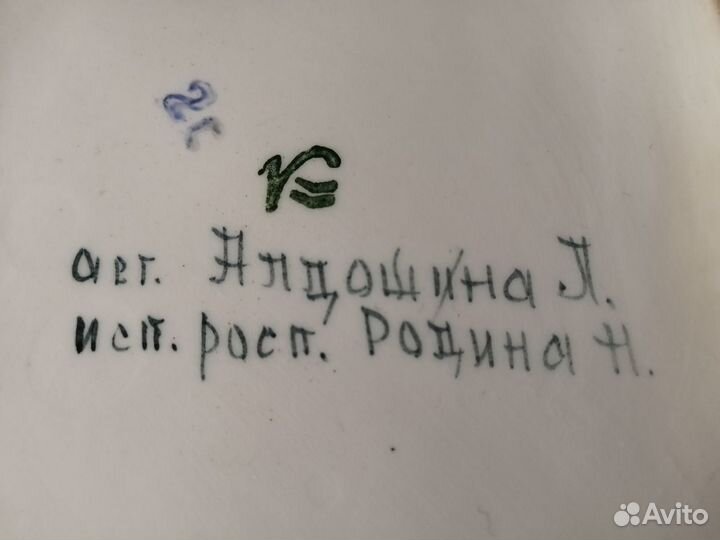 2с
авт. Алдошина Л.
исп. росп. Родина Н.
Avito